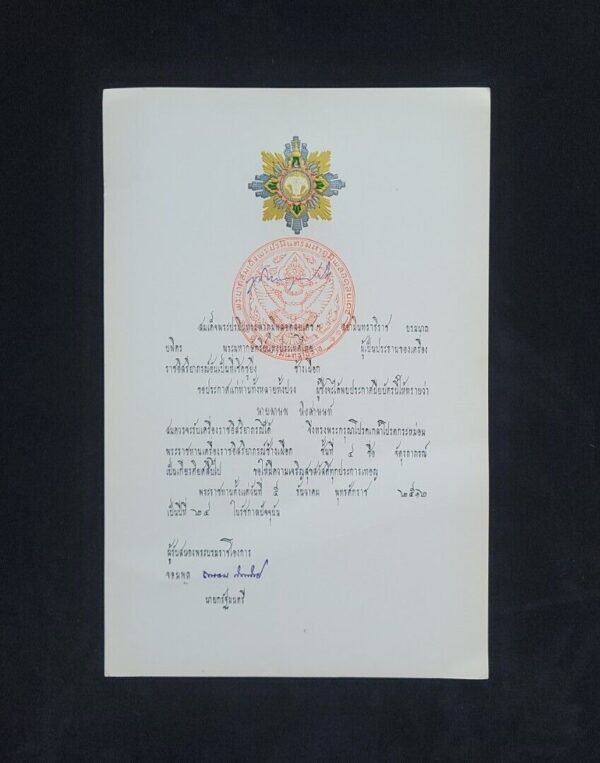 สมเด็จพระปรมินทรมหาภูมิพลอดุลยเดช ฯ สยามินทราธิราช บรมนาถ
บพิตร พระมหากษัตริย์แห่งประเทศไทย ผู้เป็นประธานของเครื่อง
ราชอิสริยาภรณ์อันเป็นที่เชิดชูยิ่ง ช้างเผือก
ขอประกาศแก่ท่านทั้งหลายทั้งปวง ผู้ซึ่งจะได้พบประกาศนียบัตรนี้ให้ทราบว่า
นาย
สมควรจะรับเครื่องราชอิสริยาภรณ์ได้ จึงทรงพระกรุณาโปรดเกล้าโปรดกระหม่อม
พระราชทานเครื่องราชอิสริยาภรณ์ช้างเผือก ชั้นที่ ๔ ชื่อ จัตุรถาภรณ์
เป็นเกียรติยศสืบไป ขอให้มีความเจริญสุขสวัสดิ์ทุกประการเทอญ
พระราชทานตั้งแต่วันที่ ๕ ธันวาคม พุทธศักราช ๒๕๑๒
เป็นปีที่ ๒๔ ในรัชกาลปัจจุบัน
ผู้รับสนองพระบรมราชโองการ
จอมพล
นายกรัฐมนตรี